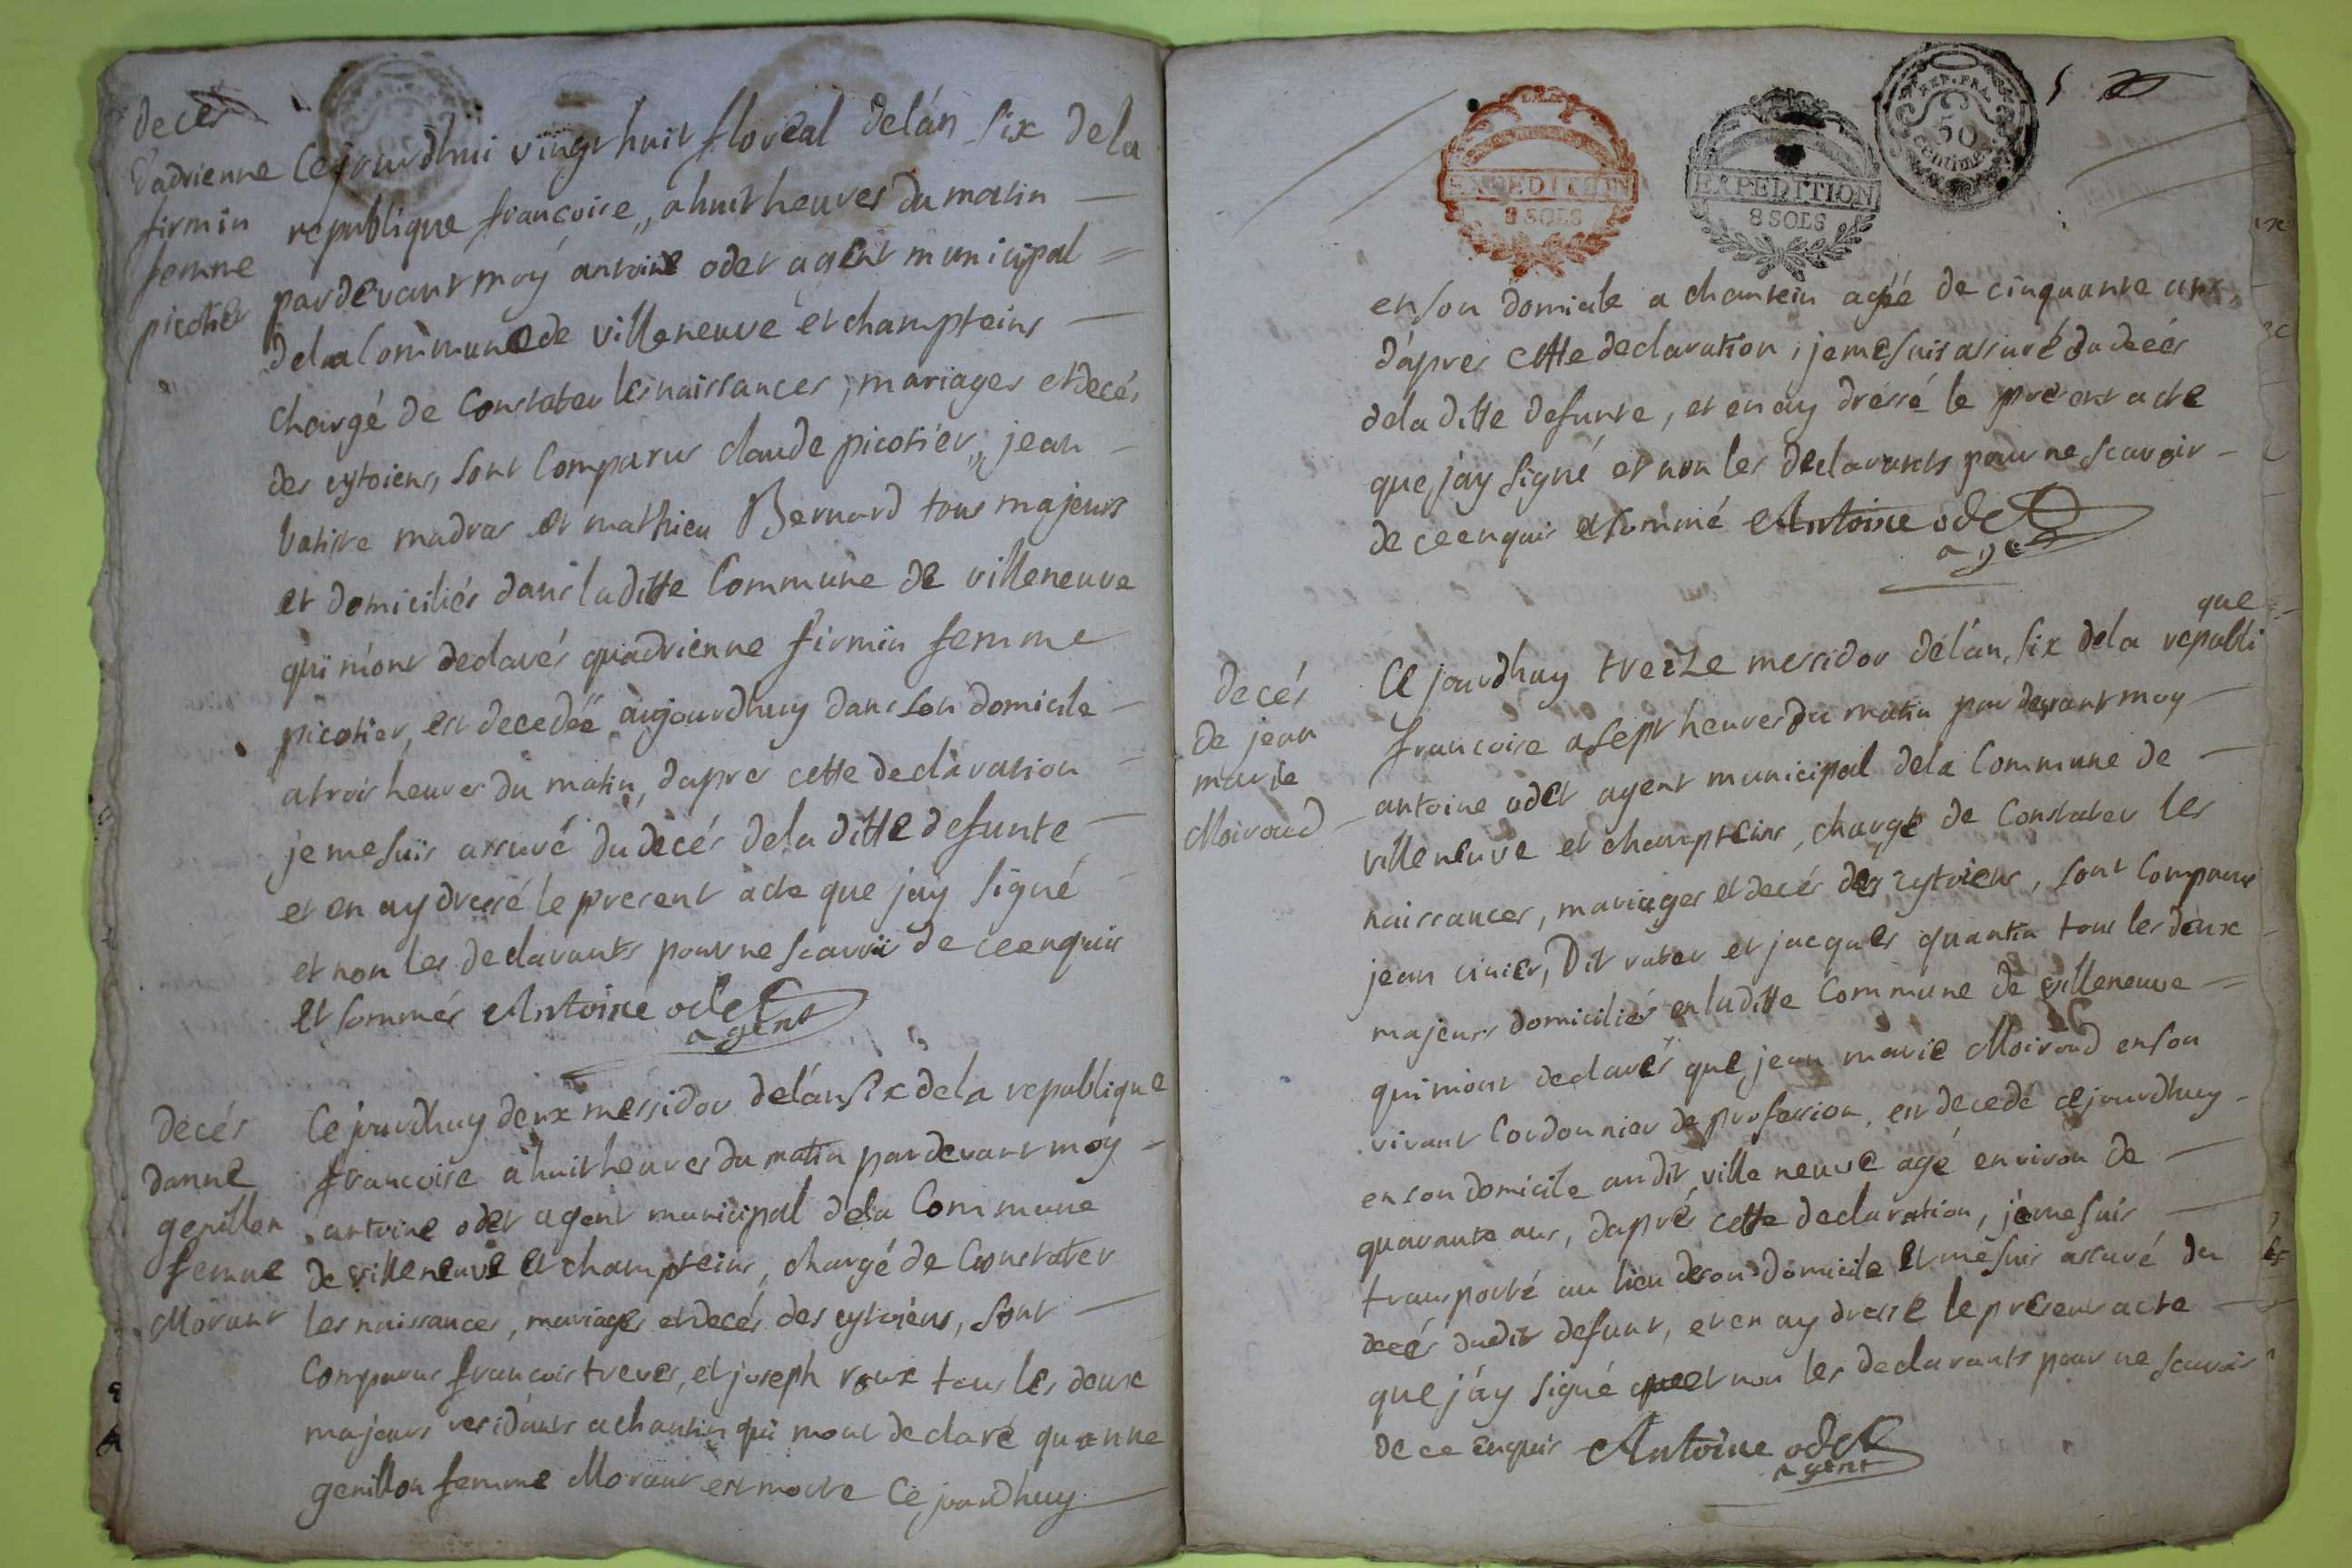 decés
d'adrienne
firmin
femme
picotier
Cejourdhui vingt huit floréal delán six dela
republique francoise, a huit heures du matin
pardevant moý antoine odet agent municipal
dela Commune de villeneuve et champteins
chargé de Constater les naissances, mariages et decés
des cytoiens, sont Comparus claude picotier, jean
batiste madras et mathieu Bernard tous majeurs
et domiciliés dans laditte Commune de villeneuve
qui m'ont declarés quadrienne firmin femme
picotier, est decedée aujourdhuy dans son domicile
a trois heures du matin, dapres cette declaration
je me suis assuré du decés dela ditte defunte
et en ay dressé le present acte que jay signé
et non les declarants pour ne scavoir de ce enquis
et sommés Antoine odet
agent
decés
danne
genillon
femme
Morant
Ce jourdhuy deux messidor delán six dela republique
francoise a huit heures du matin pardevant moy
antoine odet agent municipal dela Commune
de villeneuve et champteins, chargé de Constater
les naissances, mariages et decés des cytoiens, sont
Comparus francois treves, et joseph roux tous les deux
majeurs residants a chantin qui mont declaré quanne
genillon femme Morant est morte Ce jourdhuy
REP. FRA.
50
centimes
EXPEDITION
8 SOLS
EXPEDITION
8 SOLS
5
en son domicile a chantein agée de cinquante ans,
dápres cette declaration, je me suis assuré du decés
dela ditte defunte, et en ay dressé le present acte
que jay signé et non les declarants pour ne scavoir
de ce enquis et sommé Antoine odet
agent
decés
de jean
marie
Moiroud
que
Ce jourdhuy treize messidor delán six dela republi
francoise a sept heures du matin pardevant moy
antoine odet agent municipal dela Commune de
villeneuve et champteins, chargé de Constater les
naissances, mariages et decés des cytoiens, sont Comparus
jean cinier, Dit rater et jacques quantin tous les deux
majeurs domiciliés en laditte Commune de villeneuve
qui m'ont declarés que jean marie Moiroud en son
vivant Cordonnier de profession, est decedé cejourdhuy
en son domicile audit villeneuve agé environ de
quarante ans, daprés cette declaration, je me suis
transporté au lieu de son domicile et me suis assuré du
decés dudit defunt, et en ay dressé le présent acte
que jáy signé et non les declarants pour ne scavoir
de ce enquis Antoine odet
agent